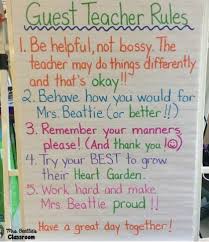 Guest Teacher Rules
1. Be helpful, not bossy. The
teacher may do things differently
and that's okay!!
2. Behave how you would for
Mrs. Beattie (or better!!)
3. Remember your manners
please! (And thank you!☺)
4. Try your BEST to grow
their Heart Garden.
5. Work hard and make
Mrs. Beattie proud!!
Have a great day together!
Mrs. Beattie's
Classroom